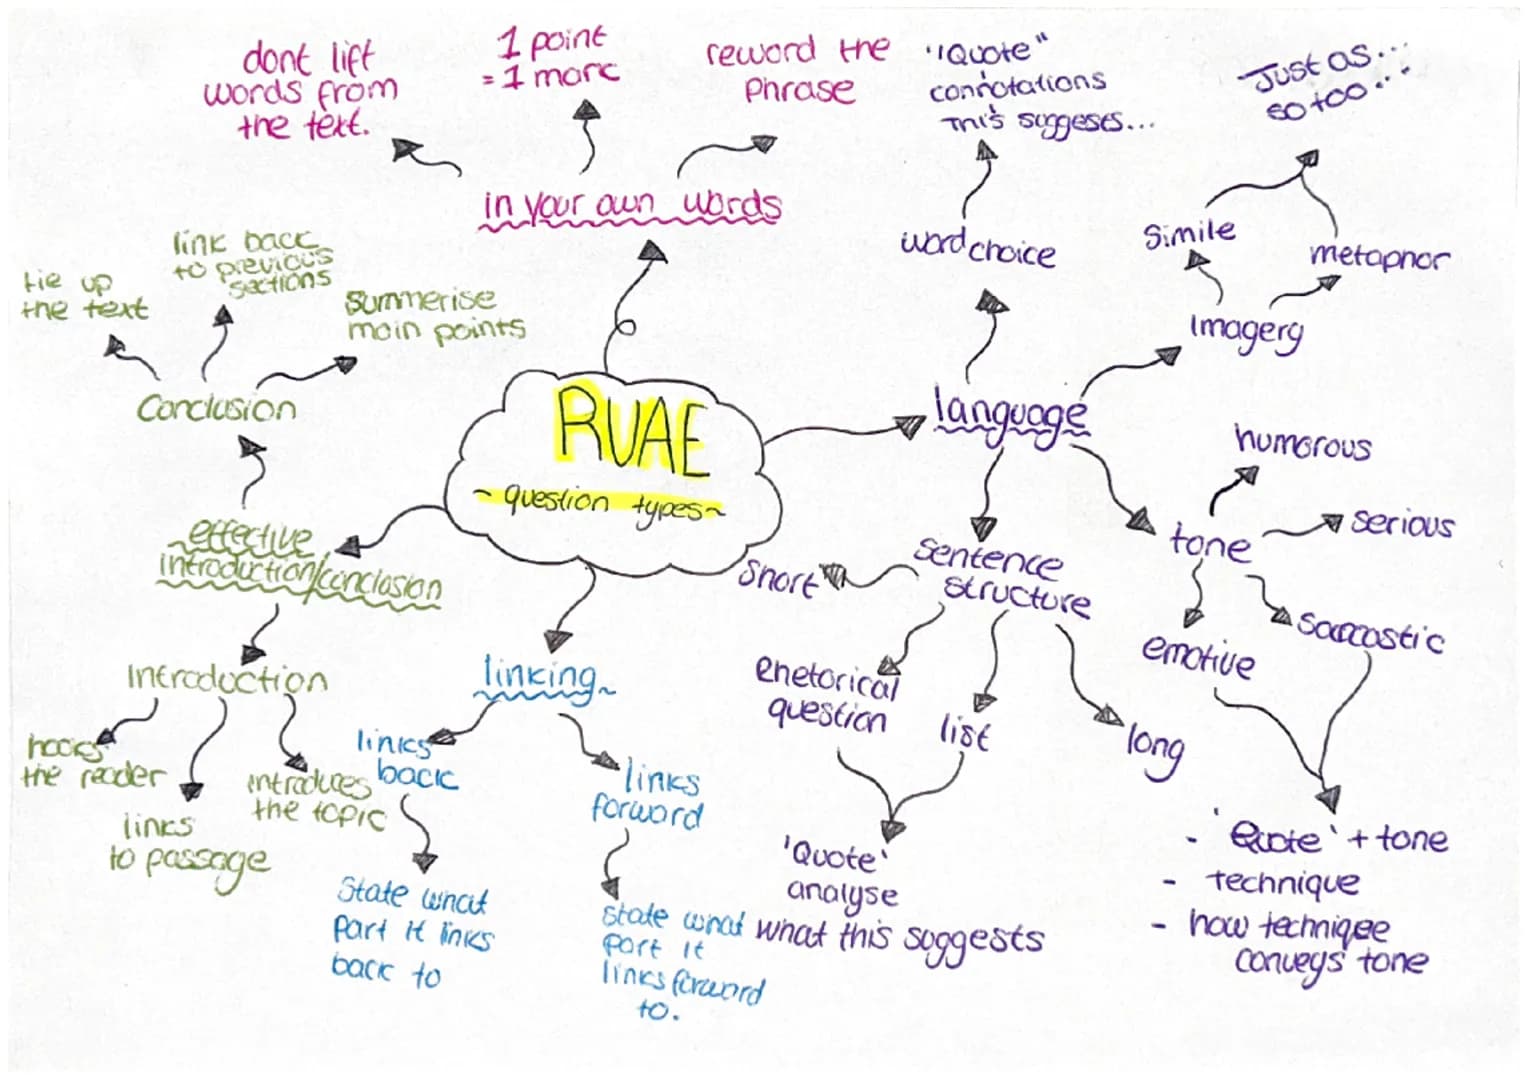 dont lift
words from
the text.
1 point
= 1 mark
reword the
phrase
"Quote"
connotations
This suggests...
Just as...
so too...
in your own words
word choice
Simile
metaphor
Imagery
tie up
the text
link back
to previous
sections
summerise
main points
Conclusion
RUAE
- question types~
language
humorous
serious
tone
sarcastic
emotive
effective
introduction/conclusion
short
sentence
structure
Introduction
linking
rhetorical
question
list
long
hooks
the reader
links
to passage
introduces
the topic
links
back
links
forward
State what
part it links
back to
state what
part it
links forward
to.
'Quote'
analyse
what this suggests
- 'Quote' + tone
- technique
- how techniqee
conveys tone